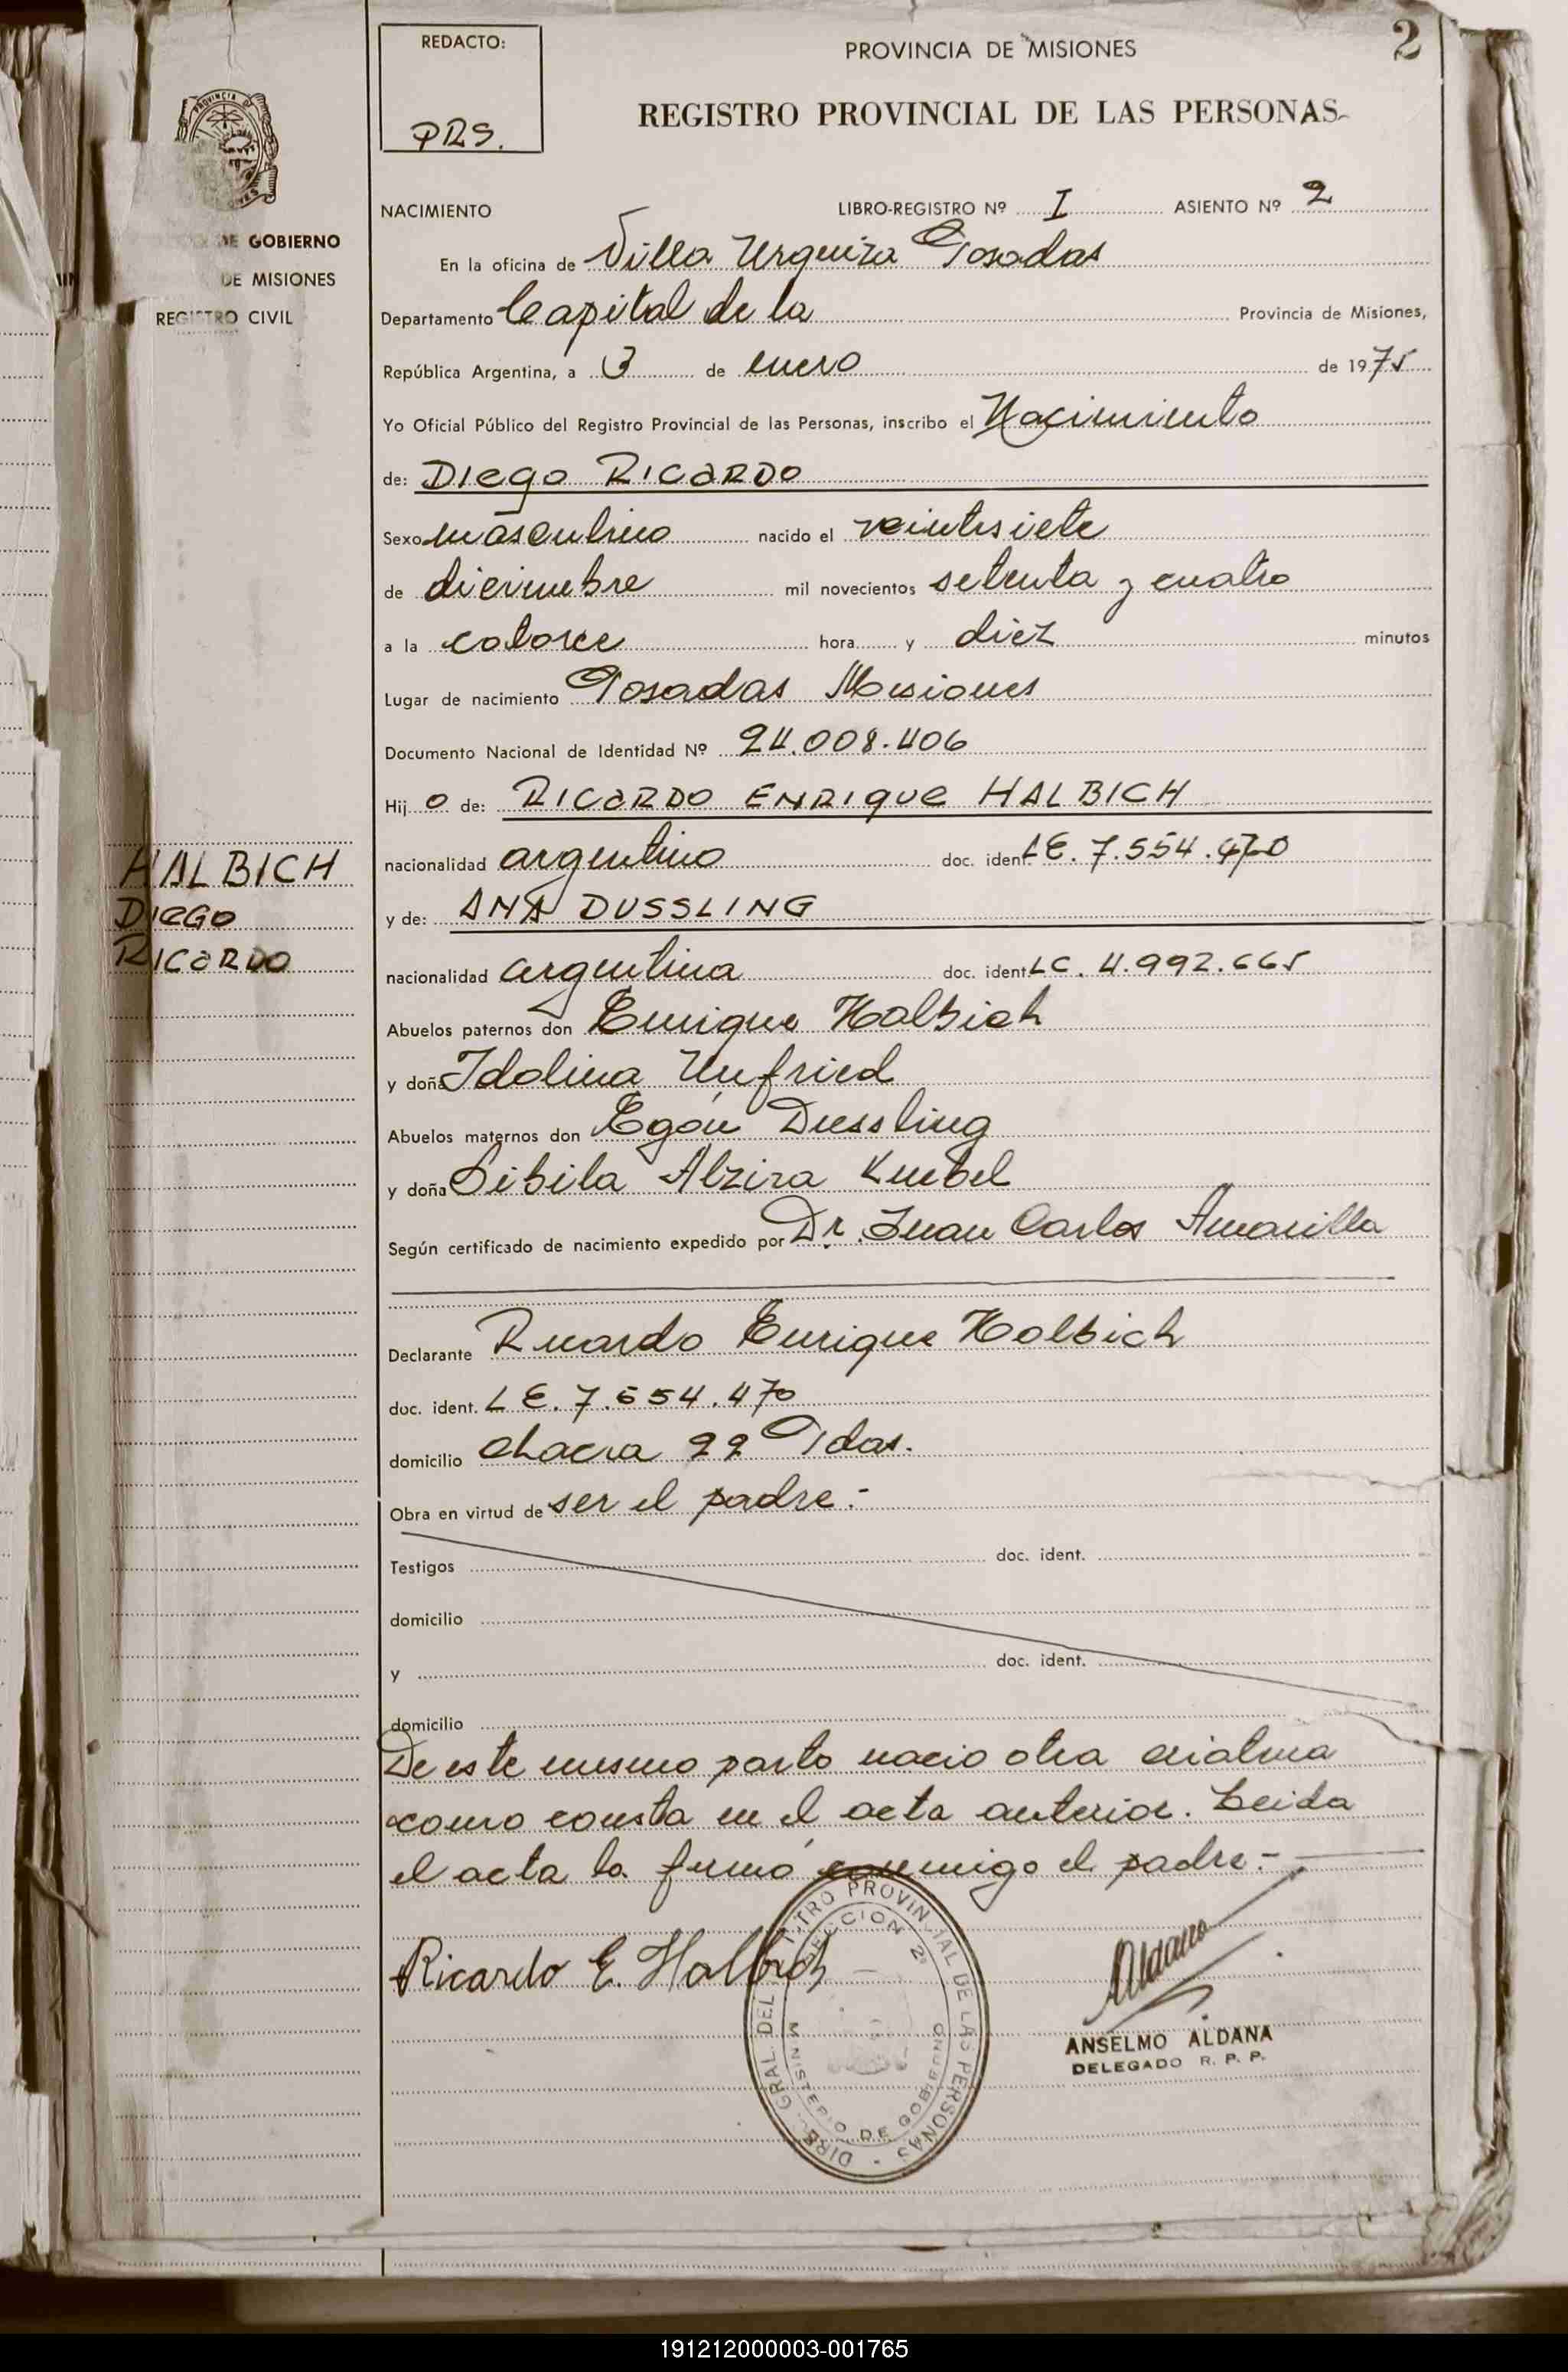 REDACTO:
PRS.
PROVINCIA DE MISIONES
2
REGISTRO PROVINCIAL DE LAS PERSONAS
DE GOBIERNO
DE MISIONES
REGISTRO CIVIL
NACIMIENTO LIBRO-REGISTRO Nº I ASIENTO Nº 2
En la oficina de Villa Urquiza Posadas
Departamento Capital de la Provincia de Misiones,
República Argentina, a 3 de enero de 1975
Yo Oficial Público del Registro Provincial de las Personas, inscribo el Nacimiento
de: Diego RICARDO
Sexo masculino nacido el veintisiete
de diciembre mil novecientos setenta y cuatro
a la catorce hora y diez minutos
Lugar de nacimiento Posadas Misiones
Documento Nacional de Identidad Nº 24.008.406
Hij o de: RICARDO ENRIque HALBICH
nacionalidad argentino doc. ident. LE. 7.554.470
y de: ANA DUSSLING
nacionalidad argentina doc. ident. LC. 4.992.665
HALBICH
DIEGO
RICARDO
Abuelos paternos don Enrique Halbich
y doña Idolina Unfried
Abuelos maternos don Egón Dussling
y doña Sibila Alzira Knebel
Según certificado de nacimiento expedido por Dr. Juan Carlos Amarilla
Declarante Ricardo Enrique Halbich
doc. ident. LE. 7.554.470
domicilio chacra 99 Pdas.
Obra en virtud de ser el padre.-
Testigos doc. ident.
domicilio
y doc. ident.
domicilio
De este mismo parto nacio otra criatura
como consta en el acta anterior. Leida
el acta la firmó conmigo el padre.-
Ricardo E. Halbich
DIREC. GRAL DEL REGISTRO PROVINCIAL DE LAS PERSONAS
SECCION 2ª
MINISTERIO DE GOBIERNO
Aldana
ANSELMO ALDANA
DELEGADO R. P. P.
191212000003-001765